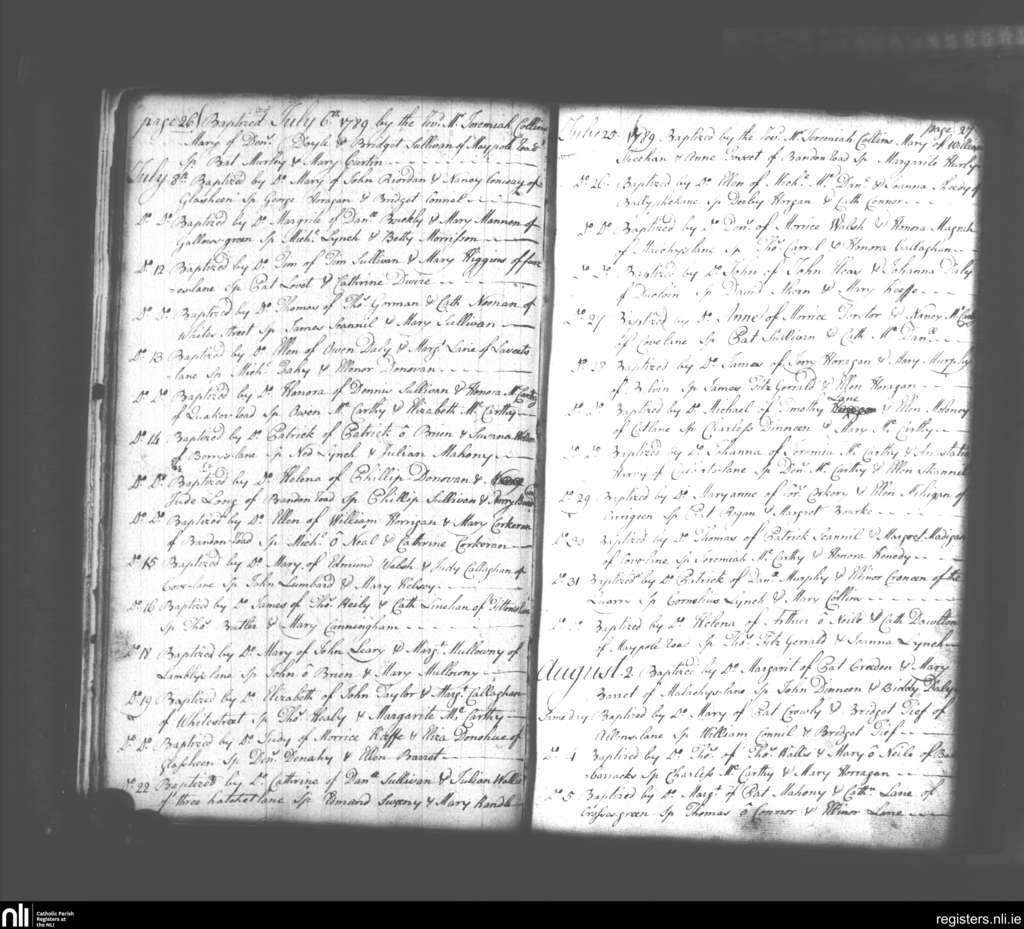 page 26 Baptized July 6th 1789 by the Revd. Mr. Jeremiah Collins
Mary of Denis. Doyle & Bridget Sullivan of Maypole Road
Sp Bat Murtey & Mary Curtin
July 8th Baptized by Do. Mary of John Riordan & Nancy Conway of
Glasheen Sp George Horagan & Bridget Connel
Do. Do. Baptized by Do. Margrite of Danll. Buckly & Mary Mannon of
Gallows green Sp Michl. Lynch & Betty Morrisson
Do. 12 Baptized by Do. Tim of Tim Sullivan & Mary Higgins of
lane Sp Pat Lovet & Cathrine Dwire
Do. Do. Baptized by Do. Thomas of Thos. Gorman & Cath Noonan of
White street Sp James Scannil & Mary Sullivan
Do. 13 Baptized by Do. Ellen of Owen Daly & Margt. Lane of
lane Sp Michl. Leahy & Ellinor Donovan
Do. Do. Baptized by Do. Honora of Dennis Sullivan & Honora Mc. Carthy
of Quaker Road Sp Owen Mc. Carthy & Elizabeth Mc. Carthy
Do. 14 Baptized by Do. Patrick of Patrick ô Brien & Susanna
of Berrys lane Sp Ned Lynch & Julian Mahony
Do. Do. Baptized by Do. Helena of Phillip Donovan &
Jude Long of Brandon Road Sp Phillip Sullivan &
Do. Do. Baptized by Do. Ellen of William Horrigan & Mary Corkeran
of Bandon Road Sp Michl. ô Neal & Cathrine Corkeran
Do. 15 Baptized by Do. Mary of Edmund Walsh & Judy Callaghan of
Cove lane Sp John Lumbard & Mary Kelsey
Do. 16 Baptized by Do. James of Thos. Hely & Cath Linehan of
Sp Thos. Butler & Mary Cunningham
Do. 18 Baptized by Do. Mary of John Leary & Margt. Mullowny of
Lumblys lane Sp John ô Brien & Mary Mullowny
Do. 19 Baptized by Do. Elizabeth of John Taylor & Margt. Callaghan
of White street Sp Thos. Healy & Margarite Mc. Carthy
Do. Do. Baptized by Do. Judy of Morrice Keeffe & Eliza Donohue of
Glasheen Sp Denis. Denahy & Ellen Barret
Do. 22 Baptized by Do. Cathrine of Danll. Sullivan & Julian
of three hatchet lane Sp Edmard Sweny & Mary
page 27
July 25 1789 Baptized by the Revd. Mr. Jeremiah Collins Mary of William
Sheehan & Anne of Bandon Road Sp Margarite Hurly
Do. 26 Baptized by Do. Ellen of Michl. Mc. Danll. & Joanna Sheedy of
Ballyphehane Sp Darby Horgan & Cath Connor
Do. Do. Baptized by Do. Denis. of Morrice Walsh & Honora Magrath
of lane Sp Thos. Carril & Honora Callaghan
Do. Do. Baptized by Do. John of John & Johanna Daly
of Sp David Ahern & Mary Keeffe
Do. 27 Baptized by Do. Anne of Morrice & Nancy Mc. Carthy
of Cove line Sp Pat Sullivan & Cath Mc. Danll.
Do. 28 Baptized by Do. James of Horragan & Mary Murphy
of Sp James Fitz Gerrald & Ellen Horagan
Lane
Do. Do. Baptized by Do. Michael of Timothy & Ellen Moloney
of Cat line Sp Charless Dinneen & Mary Mc. Carthy
Do. Do. Baptized by Do. Johanna of Jeremia Mc. Carthy & Anastatia
Harvy of lane Sp Denis. Mc. Carthy & Ellen Shannil
Do. 29 Baptized by Do. Maryanne of Corkery & Ellen Miligan of
Currigeen Sp Pat Ryan & Margret Bourke
Do. 30 Baptized by Do. Thomas of Patrick Scannil & Margret Madigan
of Cove lane Sp Jeremiah Mc. Carthy & Honora Kenedy
Do. 31 Baptized by Do. Patrick of Danll. Murphy & Ellinor Croneen of the
Quarry Sp Cornelius Lynch & Mary Collins
Do. Do. Baptized by Do. Helena of Arthur ô Neile & Cath Dawlton
of Maypole Road Sp Thos. Fitz Gerrald & Joanna Lynch
August 2 Baptized by Do. Margarit of Pat Creeden & Mary
Barret of Malachys lane Sp John Dinneen & Biddy Daly
Same day Baptized by Do. Mary of Pat Crowly & Bridget Tief of
Allens lane Sp William Connil & Bridget Tief
Do. 4 Baptized by Do. Thos. of Thos. Wallis & Mary ô Neile of
barracks Sp Charless Mc. Carthy & Mary Horragan
Do. 5 Baptized by Do. Margt. of Pat Mahony & Cath. Lane of
Crosses green Sp Thomas ô Connor & Ellinor Lane
nli
Catholic Parish
Registers at
the NLI
registers.nli.ie